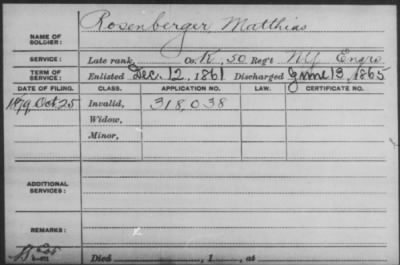 Rosenberger Matthias
NAME OF
SOLDIER:
SERVICE: Late rank, Co. K, 50 Reg't N.Y. Engrs
TERM OF
SERVICE: Enlisted Dec. 12, 1861 Discharged June 13, 1865
DATE OF FILING. CLASS. APPLICATION NO. LAW. CERTIFICATE NO.
1879 Oct 25 Invalid, 318,038
Widow,
Minor,
ADDITIONAL
SERVICES:
REMARKS:
Died , 1 , at